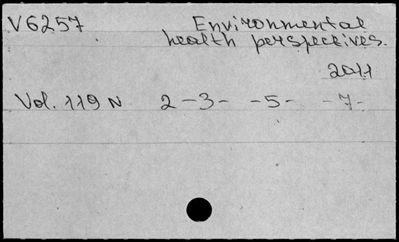 V6257 Environmental
health perspectives.
2011
Vol. 119 N 2-3- -5- -7-